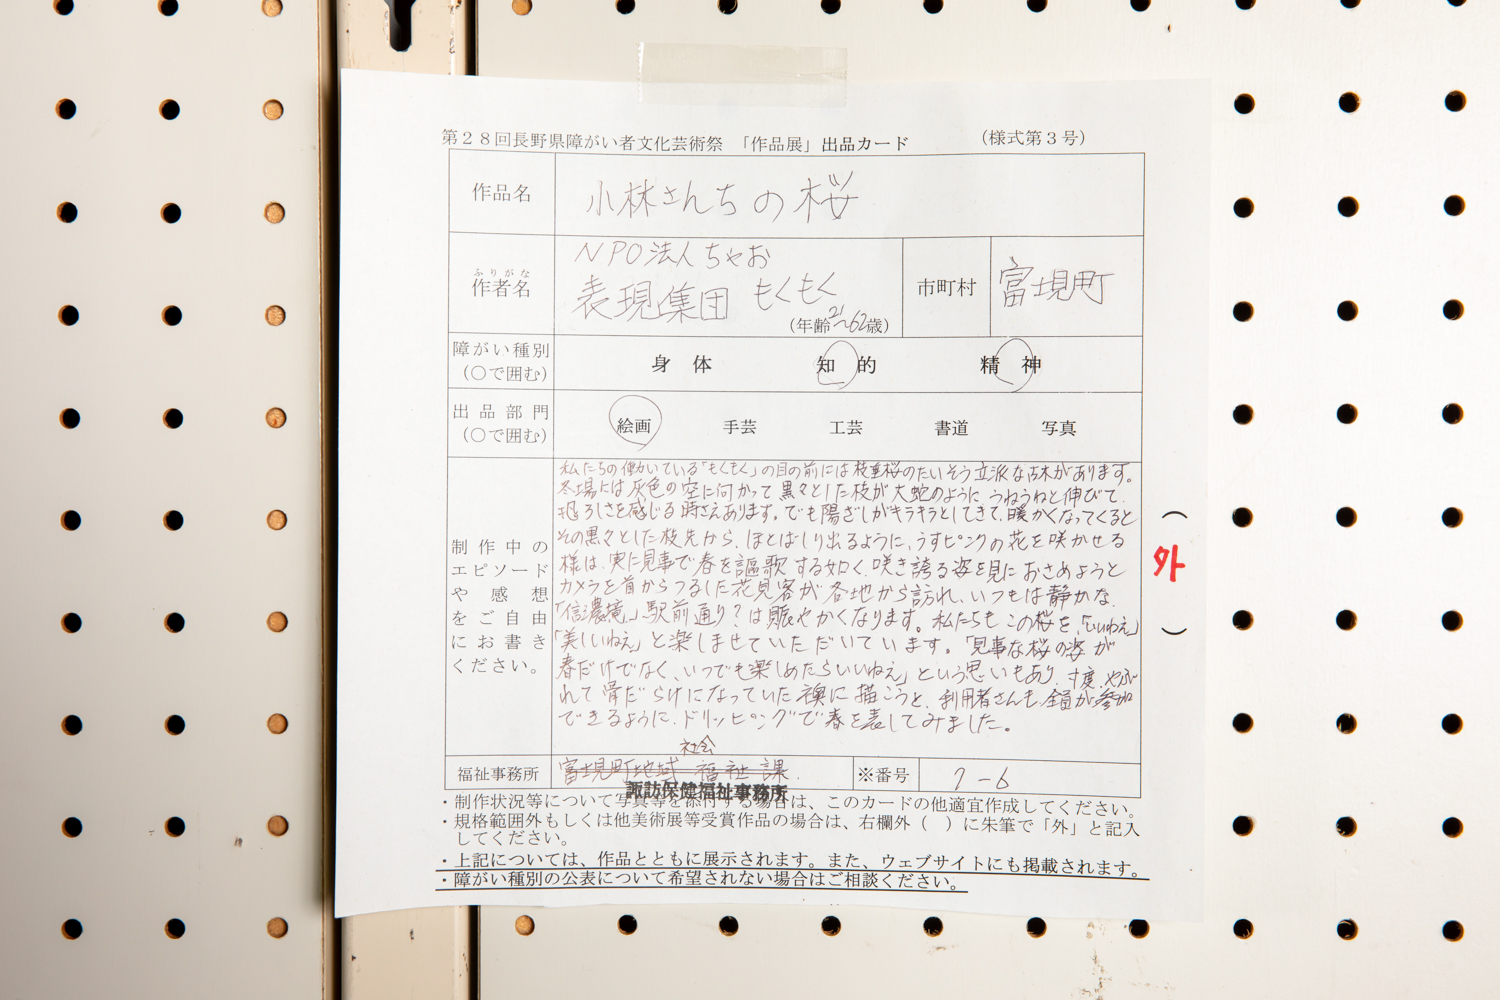 第28回長野県障がい者文化芸術祭 「作品展」出品カード (様式第3号)
作品名 小林さんちの桜
ふりがな
作者名 NPO法人ちゃお
表現集団 もくもく
(年齢21〜62歳)
市町村 富士見町
障がい種別
(○で囲む) 身体 知的 精神
出品部門
(○で囲む) 絵画 手芸 工芸 書道 写真
制作中の
エピソード
や感想
をご自由
にお書き
ください。
私たちの働いている「もくもく」の目の前には枝垂桜のたいそう立派な古木があります。
冬場には灰色の空に向かって黒々とした枝が大蛇のように うねうねと伸びて、
恐ろしさを感じる時さえあります。でも陽ざしがキラキラとしてきて、暖かくなってくると
その黒々とした枝先から、ほとばしり出るように、うすピンクの花を咲かせる
様は、実に見事で春を謳歌する如く、咲き誇る姿を見におさめようと
カメラを首からつるした花見客が各地から訪れ、いつもは静かな
「信濃境」駅前通り?は賑やかくなります。私たちもこの桜を、「いいねえ」
「美しいねえ」と楽しませていただいています。「見事な桜の姿が
春だけでなく、いつでも楽しめたらいいねえ」という思いもあり、寸度、やぶ
れて骨だらけになっていた襖に描こうと、利用者さんも全員が参加
できるように、ドリッピングで春を表してみました。
(外)
福祉事務所 富士見町地域社会福祉課
諏訪保健福祉事務所
※番号 7-6
・制作状況等について写真等を添付する場合は、このカードの他適宜作成してください。
・規格範囲外もしくは他美術展等受賞作品の場合は、右欄外( )に朱筆で「外」と記入
してください。
・上記については、作品とともに展示されます。また、ウェブサイトにも掲載されます。
・障がい種別の公表について希望されない場合はご相談ください。